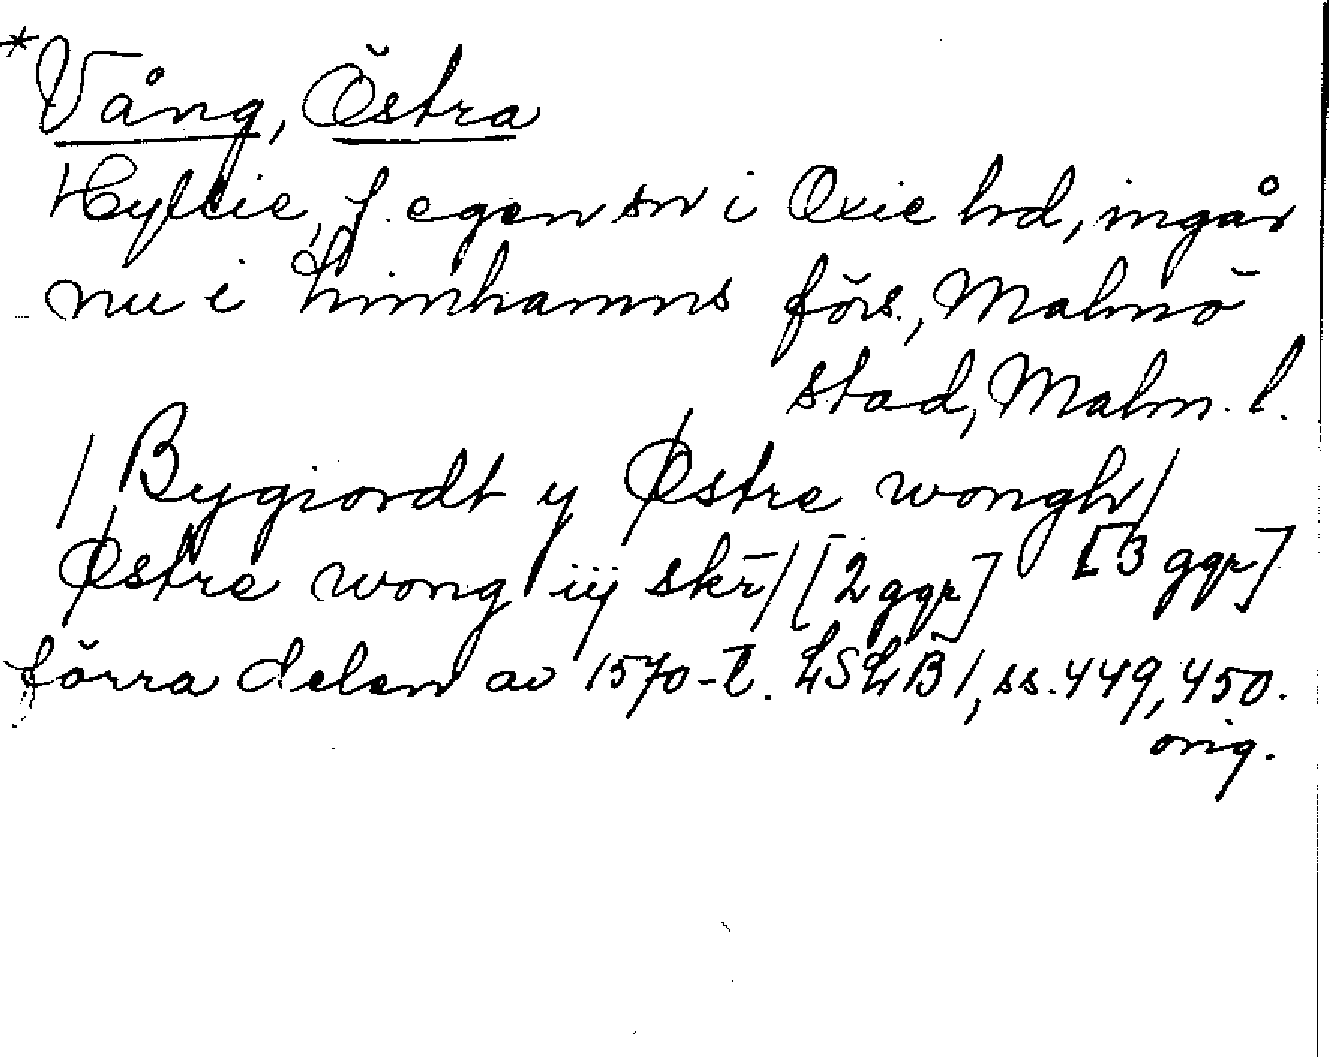 *Vång, Östra
Hyllie, f. egen sn i Oxie hd, ingår
nu i Limhamns förs., Malmö
stad, Malm. l.
/ Bygiordt y Østre wongh/
[3 ggr]
Østre wong iij skr̄/ [2 ggr]
förra delen av 1570-t. LSLB 1, ss. 449, 450.
orig.